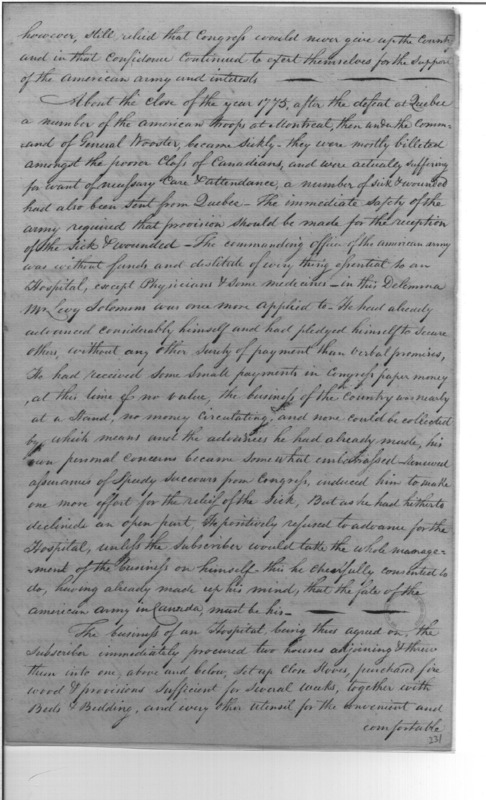 however, still, relied that Congress would never give up the Country
and in that Confidence Continued to exert themselves for the Support
of the American army and interests
About the close of the year 1775, after the defeat at Quebec
a number of the American troops at Montreal, then under the Comm-
and of General Wooster, became Sickly - they were mostly billeted
amongst the poorer Class of Canadians, and were actually suffering
for want of necessary Care & attendance, a number of sick & wounded
had also been sent from Quebec - The immediate safety of the
army required that provision should be made for the reception
of the Sick & wounded - The commanding officer of the american army
was without funds and destitute of every thing essential to an
Hospital, except Physicians & Some medecines - in this Dilemma
Mr Levy Solomons was once more applied to - He had already
advanced considerably himself and had pledged himself to secure
others, without any other surety of payment than verbal promises,
He had received some small payments in Congress paper money
, at this time of no value, the business of the Country was nearly
at a Stand, no money Circulating, and none could be collected
by which means and the advances he had already made, his
own personal concerns became some what embarrassed - Renewed
assurances of Speedy Succours from Congress, induced him to make
one more effort for the relief of the Sick, But as he had hitherto
declined an open part, He positively refused to advance for the
Hospital, unless the Subscriber would take the whole manage-
-ment of the business on himself - this he chearfully consented to
do, having already made up his mind, that the fate of the
american army in Canada, must be his -
The business of an Hospital, being thus agreed on, the
Subscriber immediately procured two houses adjoining & threw
them into one, above and below, set up Close Stoves, purchased fire
wood & provisions Sufficient for Several weeks, together with
Beds & Bedding, and every other utensil for the convenient and
comfortable
231